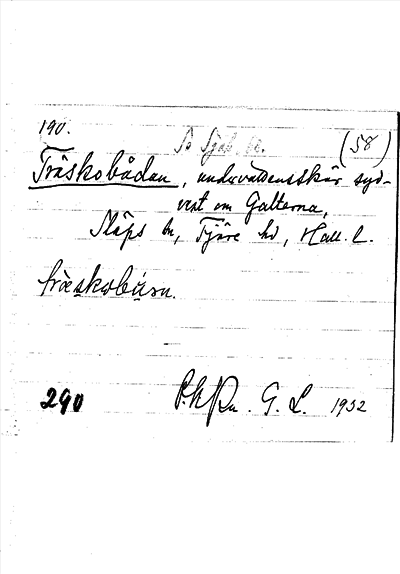 190.
(58)
Träskobådan, undervattensskär syd-
väst om Galterna,
Släps sn, Fjäre hd, Hall. l.
træskobåsn.
290 G. L. 1932